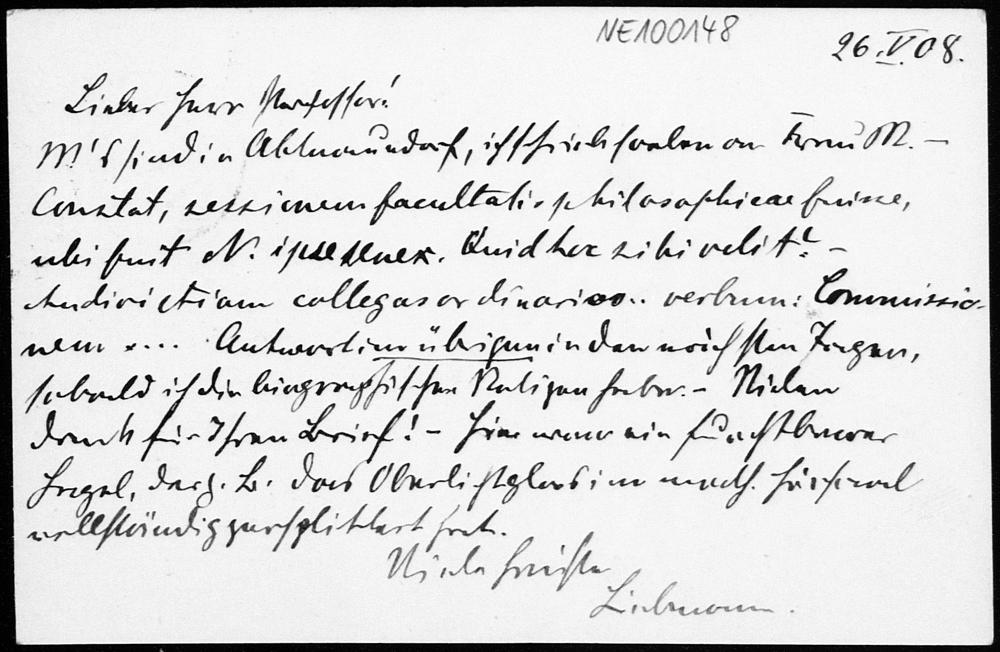 NE100148
26.V.08.
Lieber Herr Professor!
M's sind in Abtnaundorf, ich schrieb soeben an Frau M. –
Constat, sessionem facultatis philosophicae fuisse,
ubi fuit N. ipse senex. Quid hoc sibi velit? –
Audivi etiam collegas ordinarios.. verbum: Commissio-
nem .... Antwort im übrigen in den nächsten Tagen,
sobald ich die biographischen Notizen habe. – Vielen
Dank für Ihren Brief! – Hier war ein furchtbarer
Hagel, der z. B. das Oberlichtglas im math. Hörsaal
vollständig zersplittert hat.
Viele Grüsse
Liebmann.